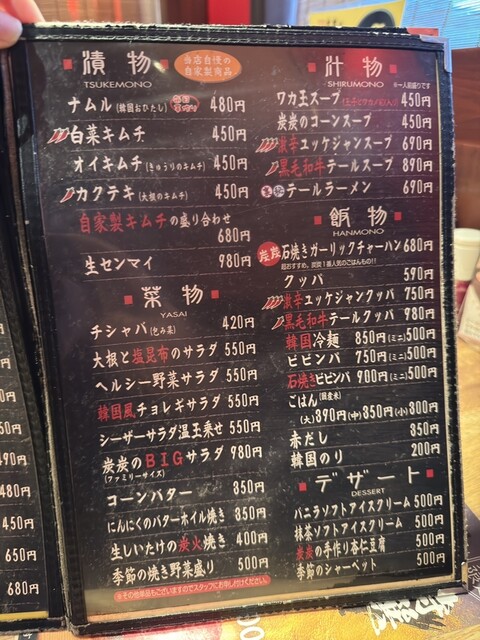 漬物
TSUKEMONO
当店自慢の
自家製商品
ナムル(韓国おひたし) 480円
白菜キムチ 450円
オイキムチ(きゅうりのキムチ) 450円
カクテキ(大根のキムチ) 450円
自家製キムチの盛り合わせ
680円
生センマイ 980円
菜物
YASAI
チシャバ(包み菜) 420円
大根と塩昆布のサラダ 550円
ヘルシー野菜サラダ 550円
韓国風チョレギサラダ 550円
シーザーサラダ温玉乗せ 550円
炭炭のBIGサラダ 980円
(ファミリーサイズ)
コーンバター 350円
にんにくのバターホイル焼き 350円
生しいたけの炭火焼き 400円
季節の焼き野菜盛り 500円
※その他単品もございますのでスタッフにお申し付けください。
汁物
SHIRUMONO
※一人前盛りです
ワカ玉スープ(玉子とワカメ入り) 450円
炭炭のコーンスープ 450円
激辛ユッケジャンスープ 690円
黒毛和牛テールスープ 890円
テールラーメン 690円
飯物
HANMONO
炭炭 石焼きガーリックチャーハン 680円
超おすすめ。炭炭1番人気のごはんもの!!
クッパ 590円
激辛ユッケジャンクッパ 750円
黒毛和牛テールクッパ 980円
韓国冷麺 850円(ミニ)500円
ビビンバ 750円(ミニ)500円
石焼きビビンバ 900円(ミニ)500円
ごはん(国産米)
(大)390円(中)350円(小)300円
赤だし 350円
韓国のり 200円
デザート
DESSERT
バニラソフトアイスクリーム 500円
抹茶ソフトアイスクリーム 500円
炭炭の手作り杏仁豆腐 500円
季節のシャーベット 500円
490円
480円
450円
650円
680円